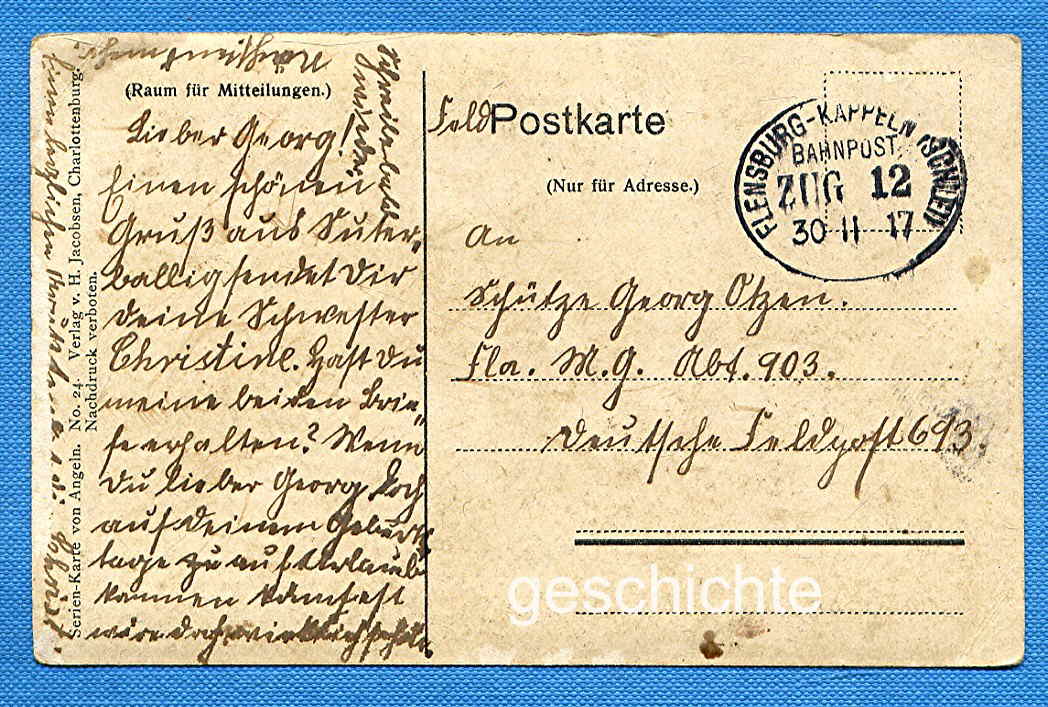 (Raum für Mitteilungen.)
Lieber Georg!
Einen schönen
Gruß aus Süter-
ballig sendet Dir
Deine Schwester
Christine. Hast Du
meine beiden Brie-
fe erhalten? Wenn
Du lieber Georg doch
auf Deinem Geburts
tage zu auf Urlaub
kommen
wäre doch wirklich
Schreibe bald
wieder
Serien-Karte von Angeln. No. 24. Verlag v. H. Jacobsen, Charlottenburg.
Nachdruck verboten.
Feld Postkarte
(Nur für Adresse.)
FLENSBURG-KAPPELN (SCHLEI)
BAHNPOST
ZUG 12
30 11 17
An
Schütze Georg Otzen.
Fla. M.G. Abt. 903.
Deutsche Feldpost 693.
geschichte